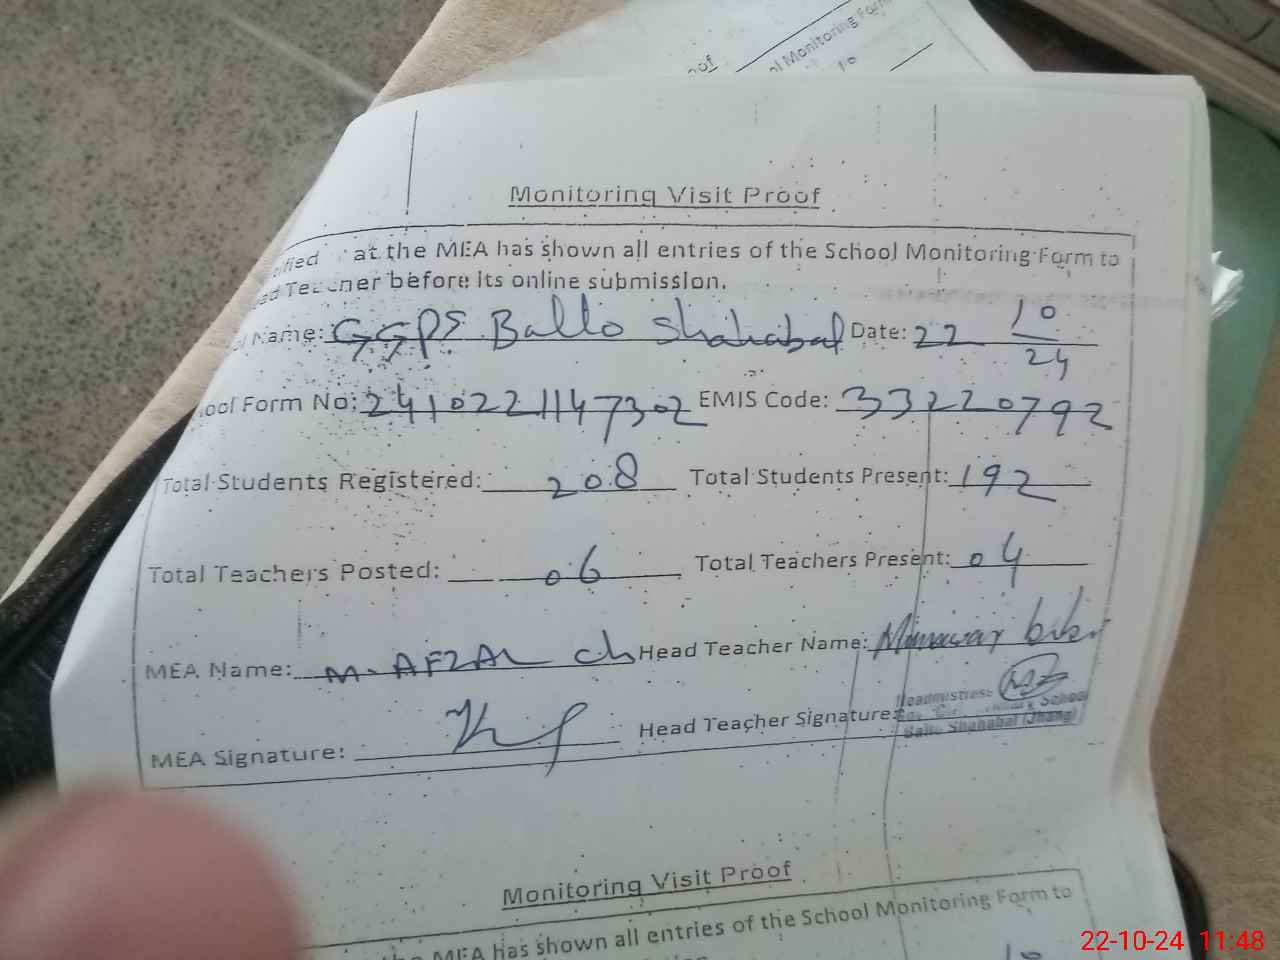 of
ol Monitoring For
10
Monitoring Visit Proof
ified at the MEA has shown all entries of the School Monitoring Form to
ed Teacher before its online submission.
ol Name: GGPS Ballo Shahabal Date: 22 10/24
ool Form No: 2410221147302 EMIS Code: 33220792
Total Students Registered: 208 Total Students Present: 192
Total Teachers Posted: 06 Total Teachers Present: 04
MEA Name: M. AFZAL ch Head Teacher Name: Munawar bibi
MEA Signature: Head Teacher Signature:
Headmistress
School
Ballo Shahabal (Jhang)
Monitoring Visit Proof
the MEA has shown all entries of the School Monitoring Form to
10
22-10-24 11:48